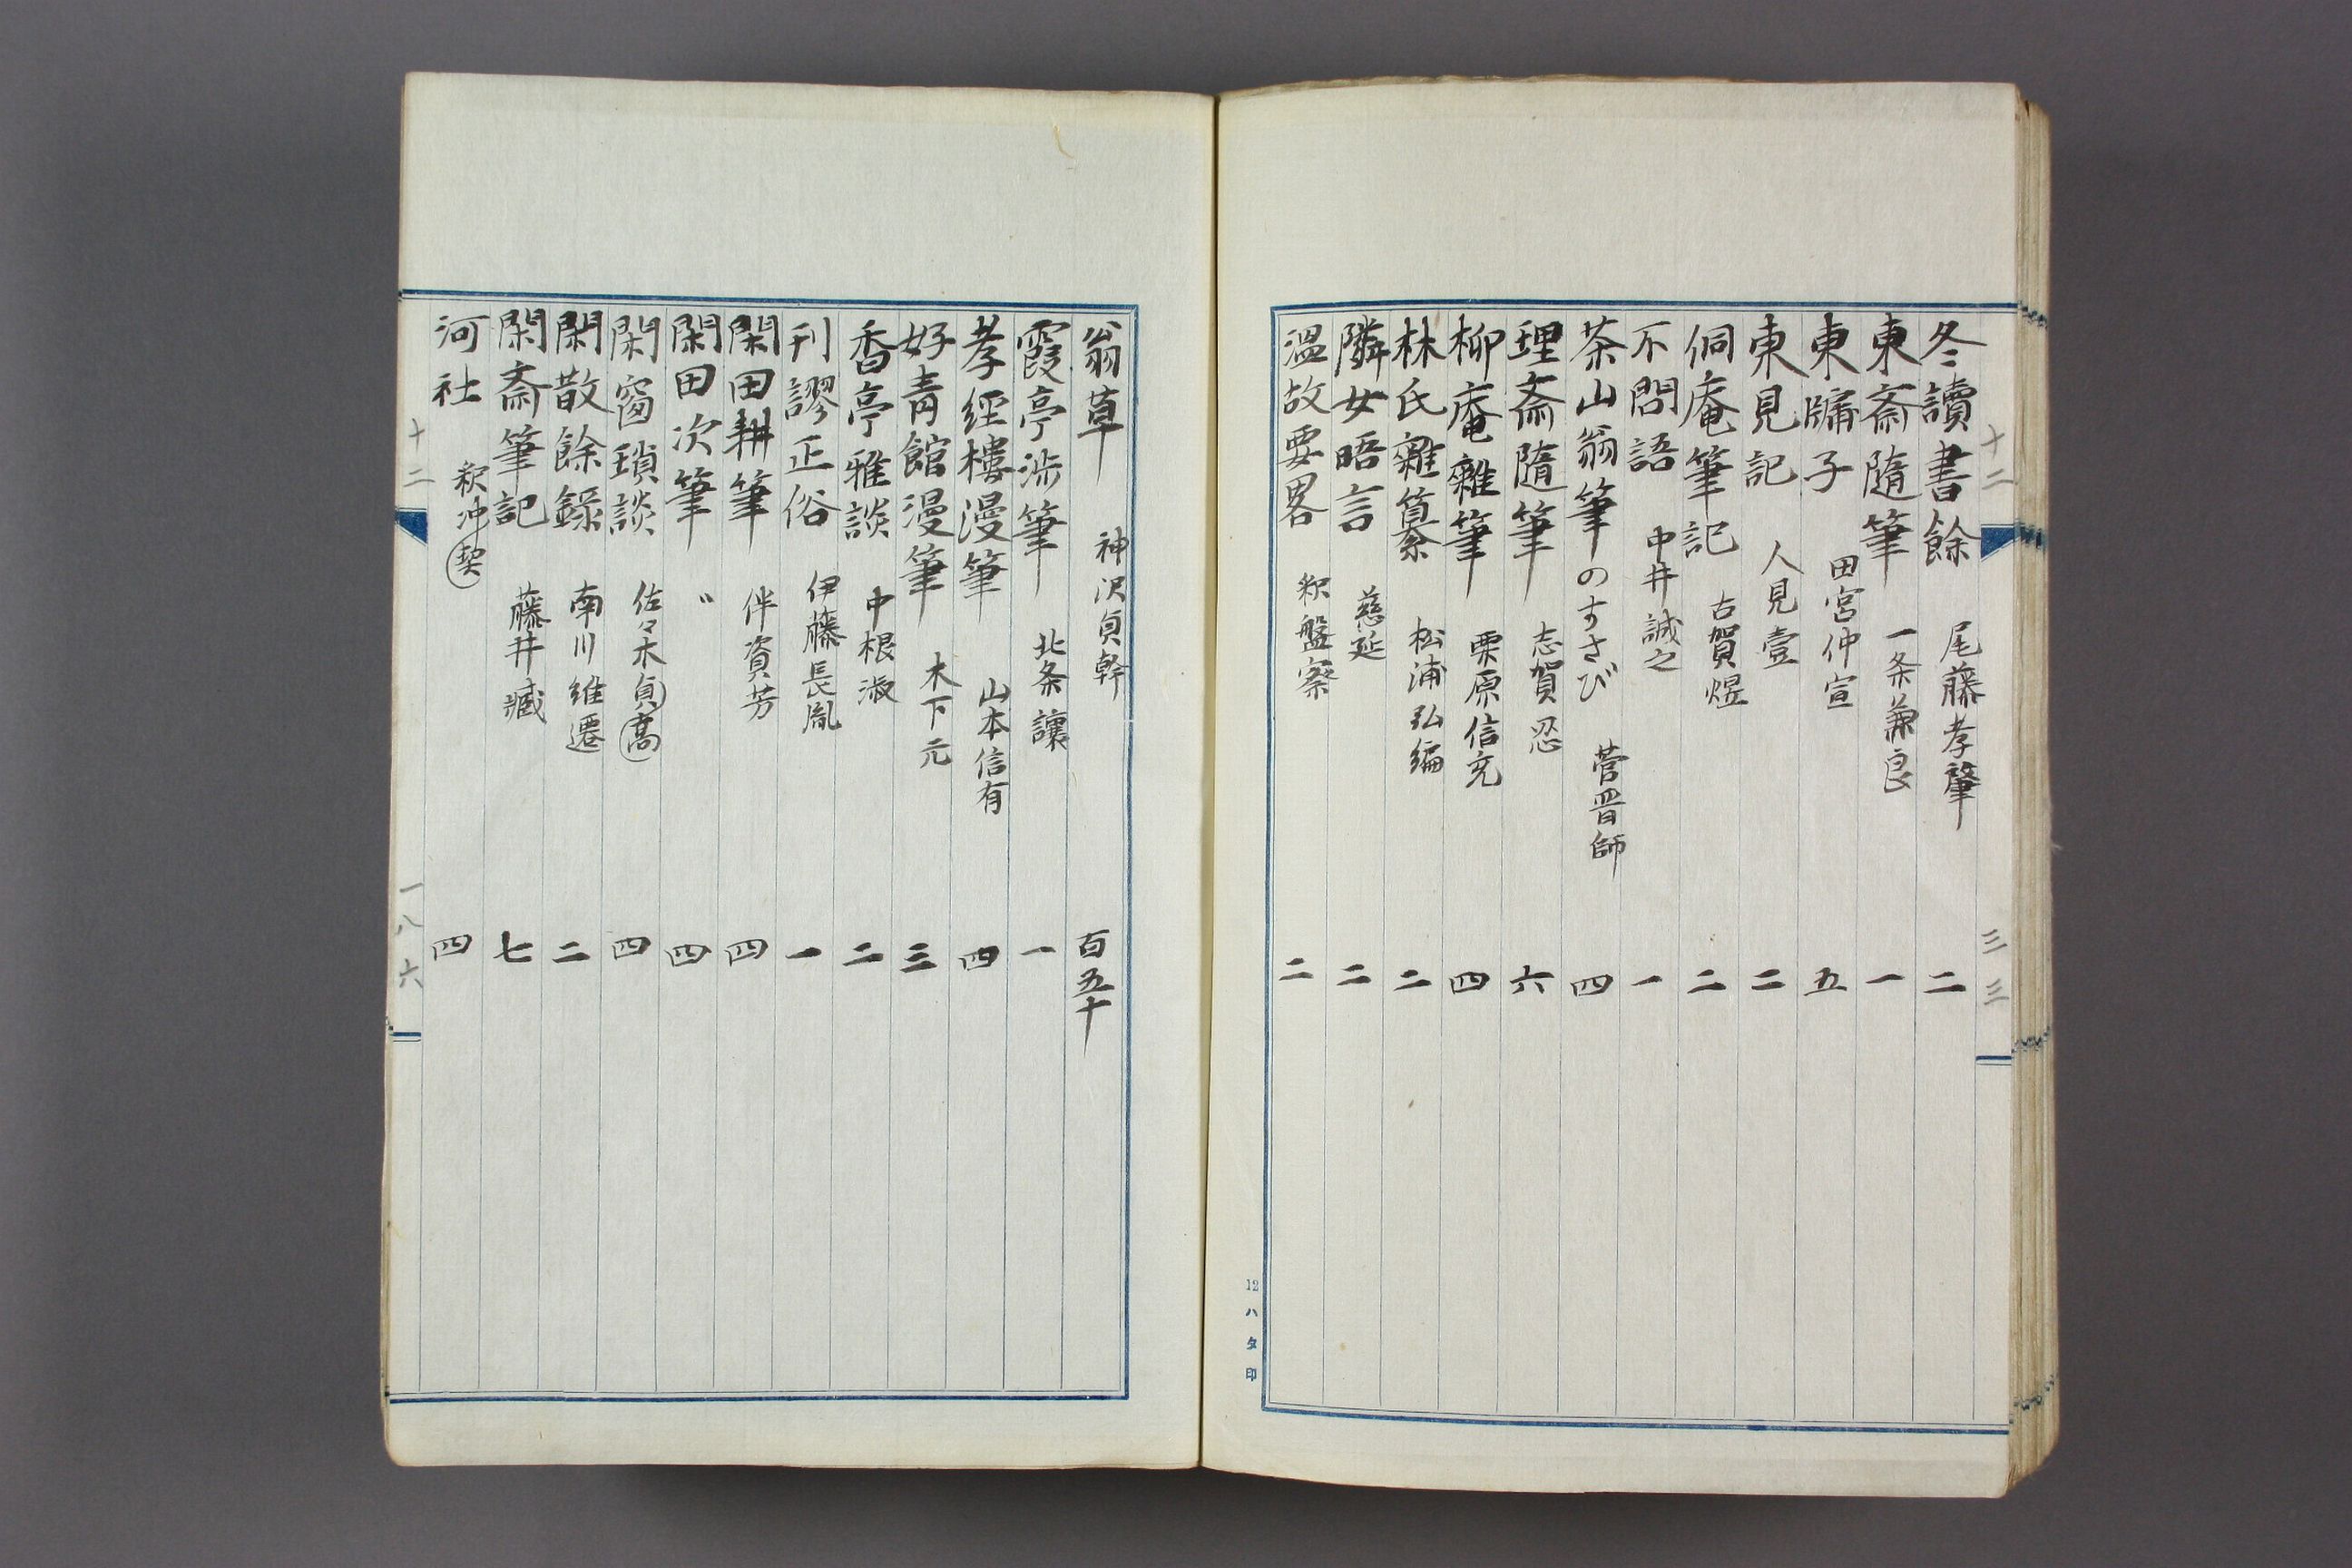 十二
三三
冬讀書餘 尾藤孝肇 二
東斎隨筆 一条兼良 一
東牖子 田宮仲宣 五
東見記 人見壹 二
侗庵筆記 古賀煜 二
不問語 中井誠之 一
茶山翁筆のすさび 菅晋師 四
理斎隨筆 志賀忍 六
柳庵雜筆 栗原信充 四
林氏雜纂 松浦弘編 二
隣女晤言 慈延 二
温故要畧 釈盤察 二
12ハタ印
翁草 神沢貞幹 百五十
霞亭渉筆 北条讓 一
孝經樓漫筆 山本信有 四
好青館漫筆 木下元 三
香亭雅談 中根淑 二
刊謬正俗 伊藤長胤 一
閑田耕筆 伴資芳 四
閑田次筆 〃 四
閑窗瑣談 佐々木貞高 四
閑散餘錄 南川維遷 二
閑斎筆記 藤井臧 七
河社 釈冲契 四
十二
一八六